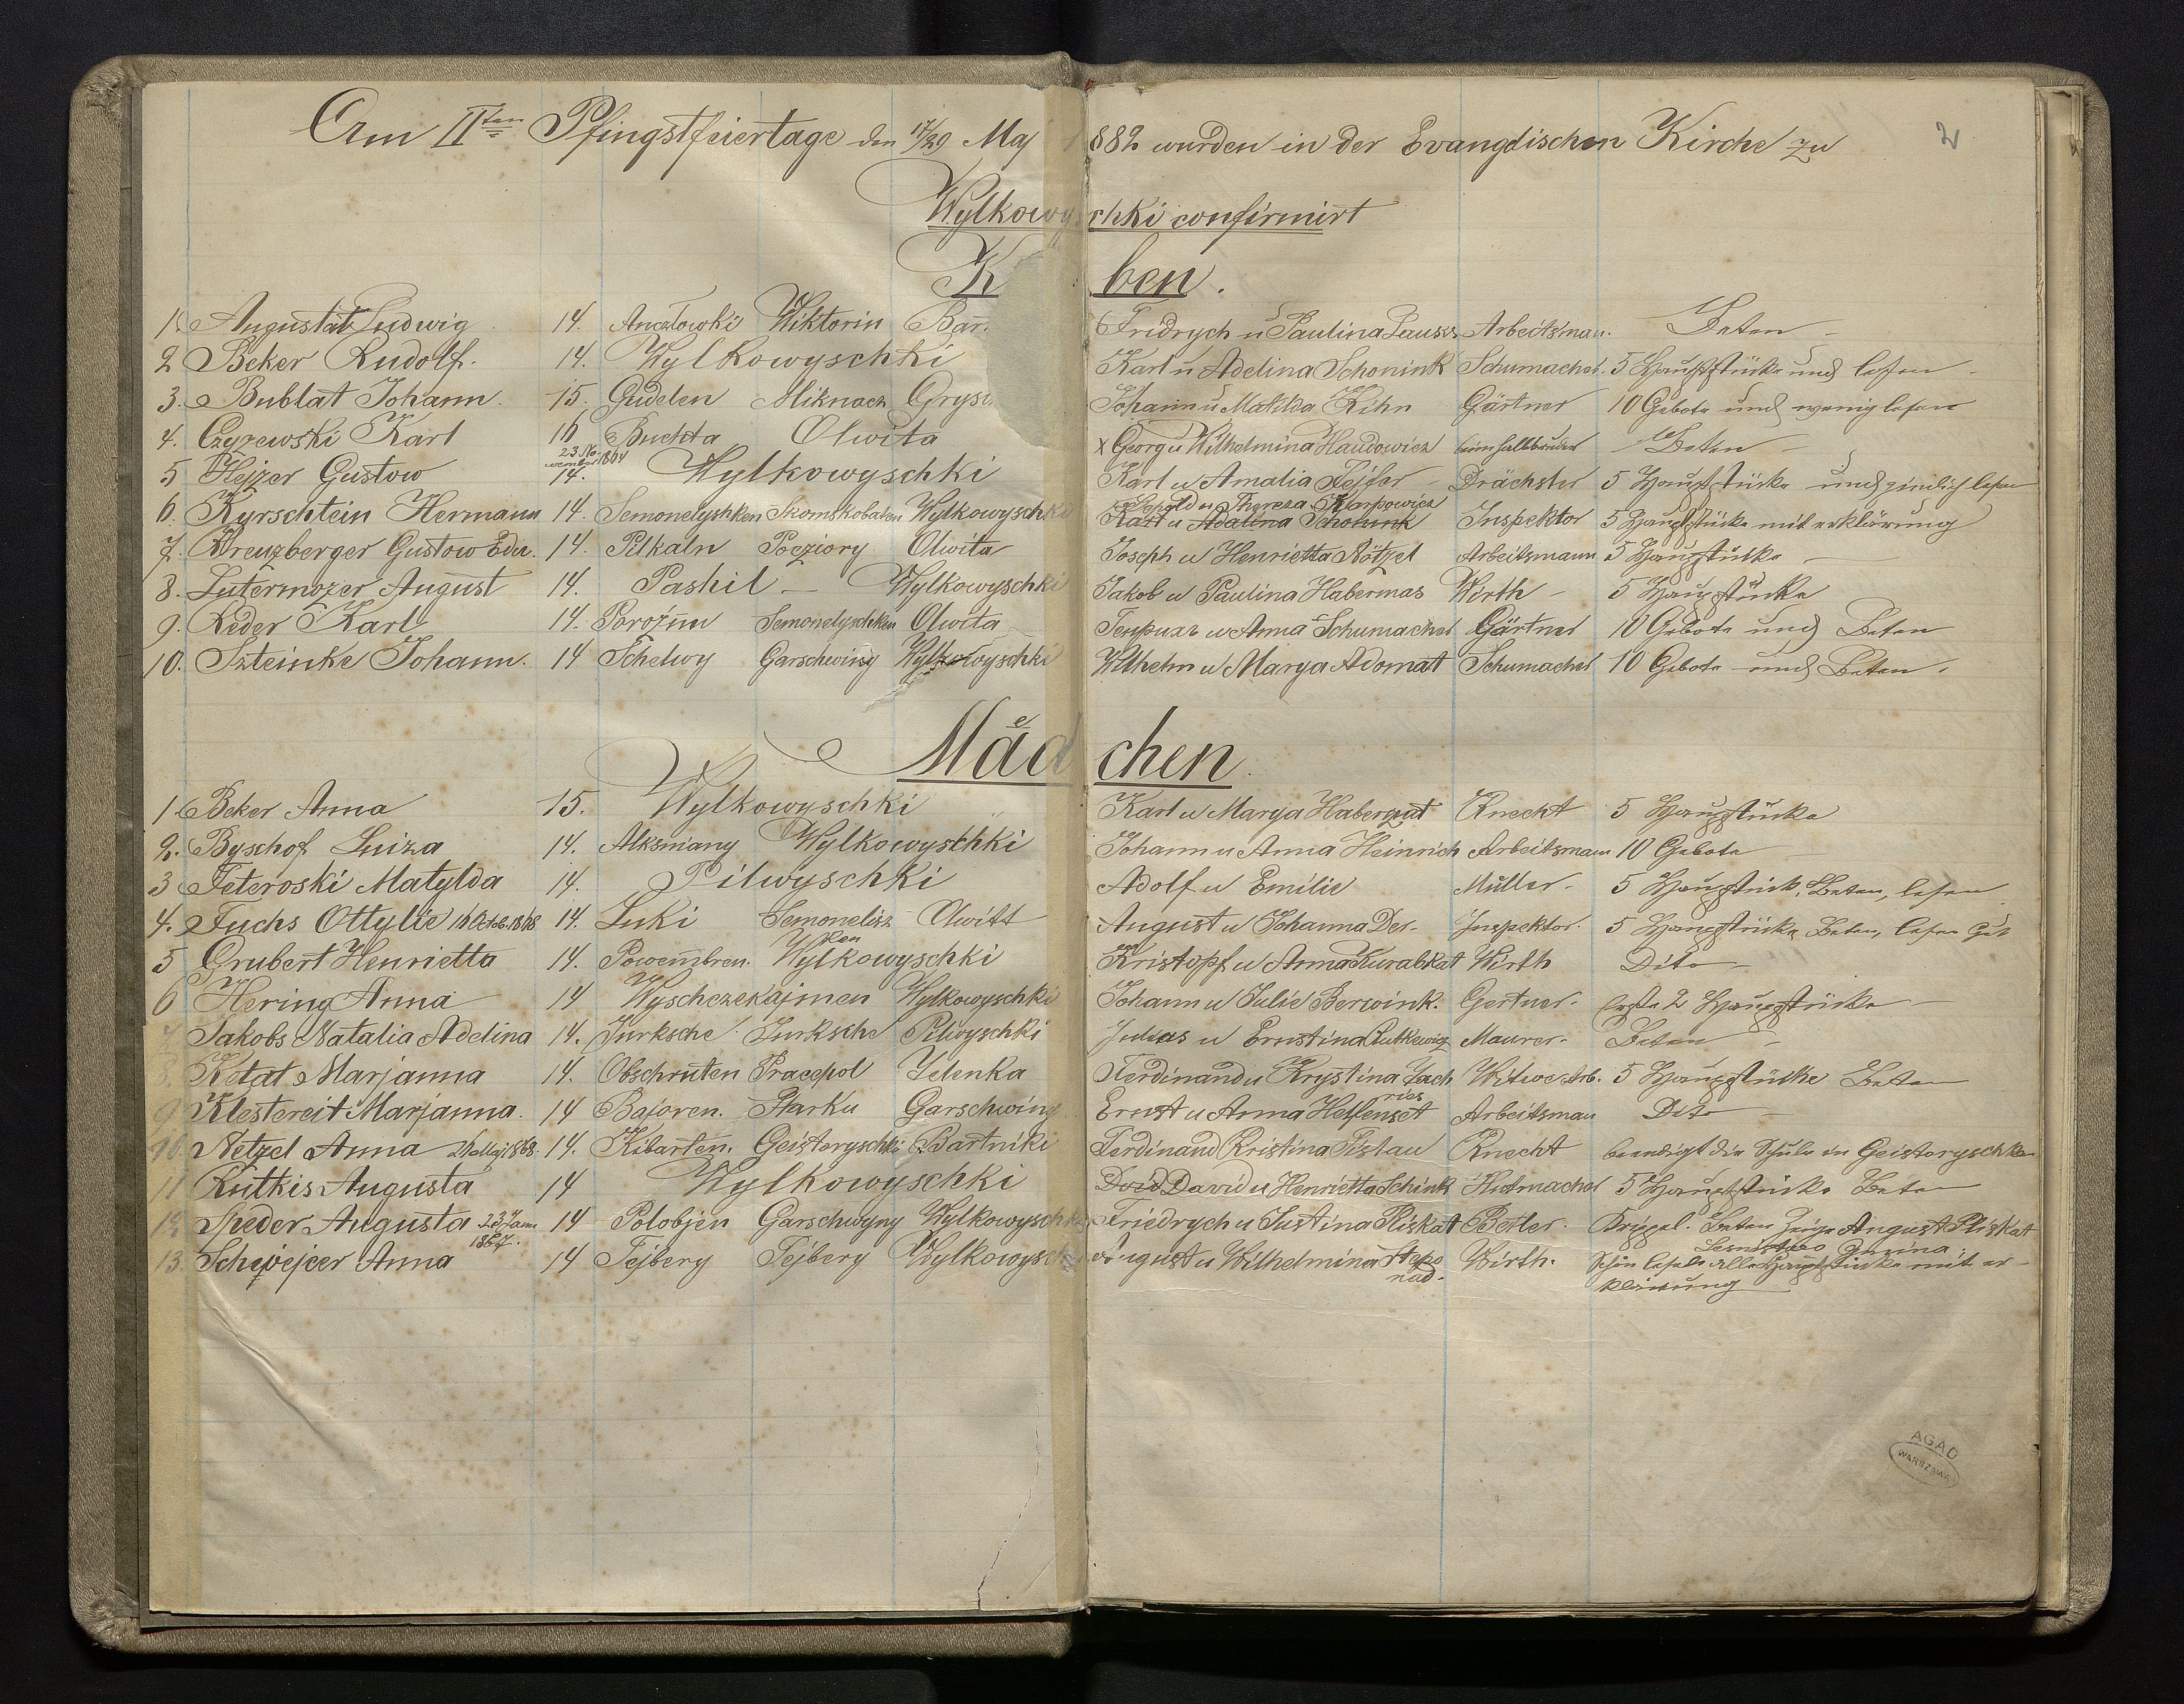 Am II ten Pfingstfeiertage den 17/29 Maj 882 wurden in der Evangelischen Kirche zu
2
Wylkowyschki confirmirt
K ben.
1. Augustat Ludwig 14. Anczlowki Wiktorin Bar. Fridrych u Paulina Arbeitsman. Beten
2 Beker Rudolf. 14. Wylkowyschki Karl u Adelina Schonink Schumacher. 5 Hauptstücke und lesen
3. Bublat Johann 15. Gudelen Miknach Johann u Matilda Kihn Gärtner 10 Gebote und wenig lesen
4. Czyzewski Karl 16 Buchta Olwita x Georg u Wilhelmina Haudowicz Beten
23 No-vember 1864
5 Hejzer Gustow 14. Wylkowyschki Karl u Amalia Fejfer Drächsler 5 Hauptstücke und zimlich lesen
Leopold u Thereza Karpowicz
6. Kyrschtein Hermann 14. Semonelyshken Skomskobalen Wylkowyschki Karl u Adalina Schonink Inspektor 5 Hauptstücke mit erklärung
7. Kreuzberger Gustow Edu. 14. Pilkaln Poeziory Olwita Joseph u Henrietta Nötzel Arbeitsmann 5 Hauptstücke
8. Lutermozer August 14. Pashil Wylkowyschki Jakob u Paulina Habermas Wirth 5 Hauptstücke
9. Reder Karl 14. Semonelyschken Olwita Генрихъ u Anna Schumacher Gärtner 10 Gebote und Beten
10. Szteinke Johann. 14 Schelwy Garschwing Wylkowyschki Wilhelm u Marya Adomatt Schumacher 10 Gebote und Beten.
Mädchen
1 Beker Anna 15. Wylkowyschki Karl u Marya Habergut Knecht 5 Hauptstücke
2. Byschof Luiza 14. Alksniany Wylkowyschki Johann u Anna Heinrich Arbeitsmann 10 Gebote
3 Feteroski Matylda 14. Pilwyschki Adolf u Emilie Müller. 5 Hauptstück, Beten, lesen
4. Fuchs Ottylie 16 Octob. 1868 14. Luki Semonelisz ken Olwitt August u Johanna Der. Inspektor. 5 Hauptstücke Beten, lesen Gut
5 Grubert Henrietta 14. Powembren. Wylkowyschki Kristopf u Anna Kurabkat Wirth Dito
6 Hering Anna 14 Wyschczekajmen Wylkowyschki Johann u Julie Berwink. Gertner. erste 2 Hauptstücke
7 Jakobs Natalia Adelina 14. Jurksche Jurksche Pilwyschki Julias u Ernstina Rutkewicz Maurer. Beten
8. Ketat Marjanna 14. Obschruten Pracepol Zelenka Ferdinand u Krystina Zach ries Witwe Arb. 5 Hauptstücke Beten
9. Klestereit Marjanna. 14 Bajoren. Starku Garschwing Ernst u Anna Helfenset Arbeitsman Dito
10. Netzel Anna 24 Maj 1868. 14. Kibarten. Geisteryschki Bartniki Ferdinand Kristina Pislau Knecht beendigt die Schule in Geistoryschken
11 Rutkis Augusta 14 Wylkowyschki David u Henrietta Schink Hutmacher 5 Hauptstücke Beten
12. Speder Augusta 23 Jann 1867. 14 Polobjen Garschwyny Wylkowyschki Friedrych u Justina Pliskat Betler. Krippel. Beten Zeige August Pliskat
13. Schwejcer Anna 14 Fejbery Fejbery Wylkowysch August u Wilhelmina Stepo nad. Wirth. Schön lesen alle Hauptstücke mit er-
klärung
AGAD
WARSZAWA